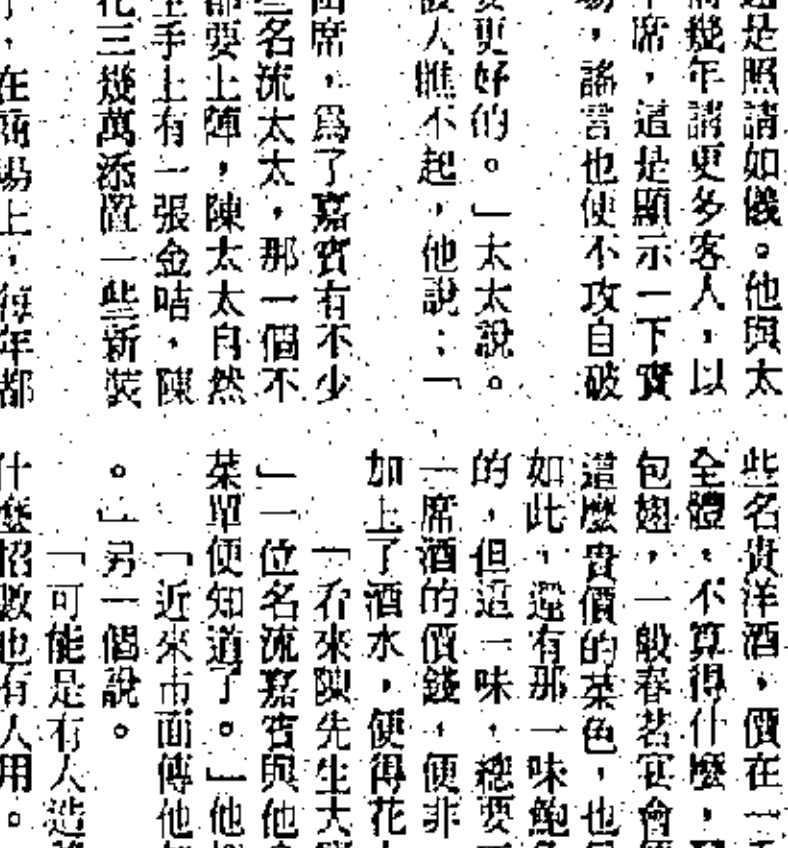 是照請如儀。他與太
幾年請更多客人,以
席,這是顯示一下實
,謠言也使不攻自破
更好的。」太太說。
人瞧不起,他說:「
席,爲了嘉賓有不少
名流太太,那一個不
要上陣,陳太太自然
手上有一張金咭,陳
花三幾萬添置一些新裝
,在商場上,每年都
些名貴洋酒,價在一
全體,不算得什麼,
包翅,一般春茗宴會
這麼貴價的菜色,也
如此,還有那一味鮑
的,但這一味,總要
一席酒的價錢,便非
加上了酒水,便得花
「看來陳先生大
」一位名流嘉賓與他
菜單便知道了。」他
「近來市面傳他
。」另一個說。
「可能是有人造
什麼招數也有人用。